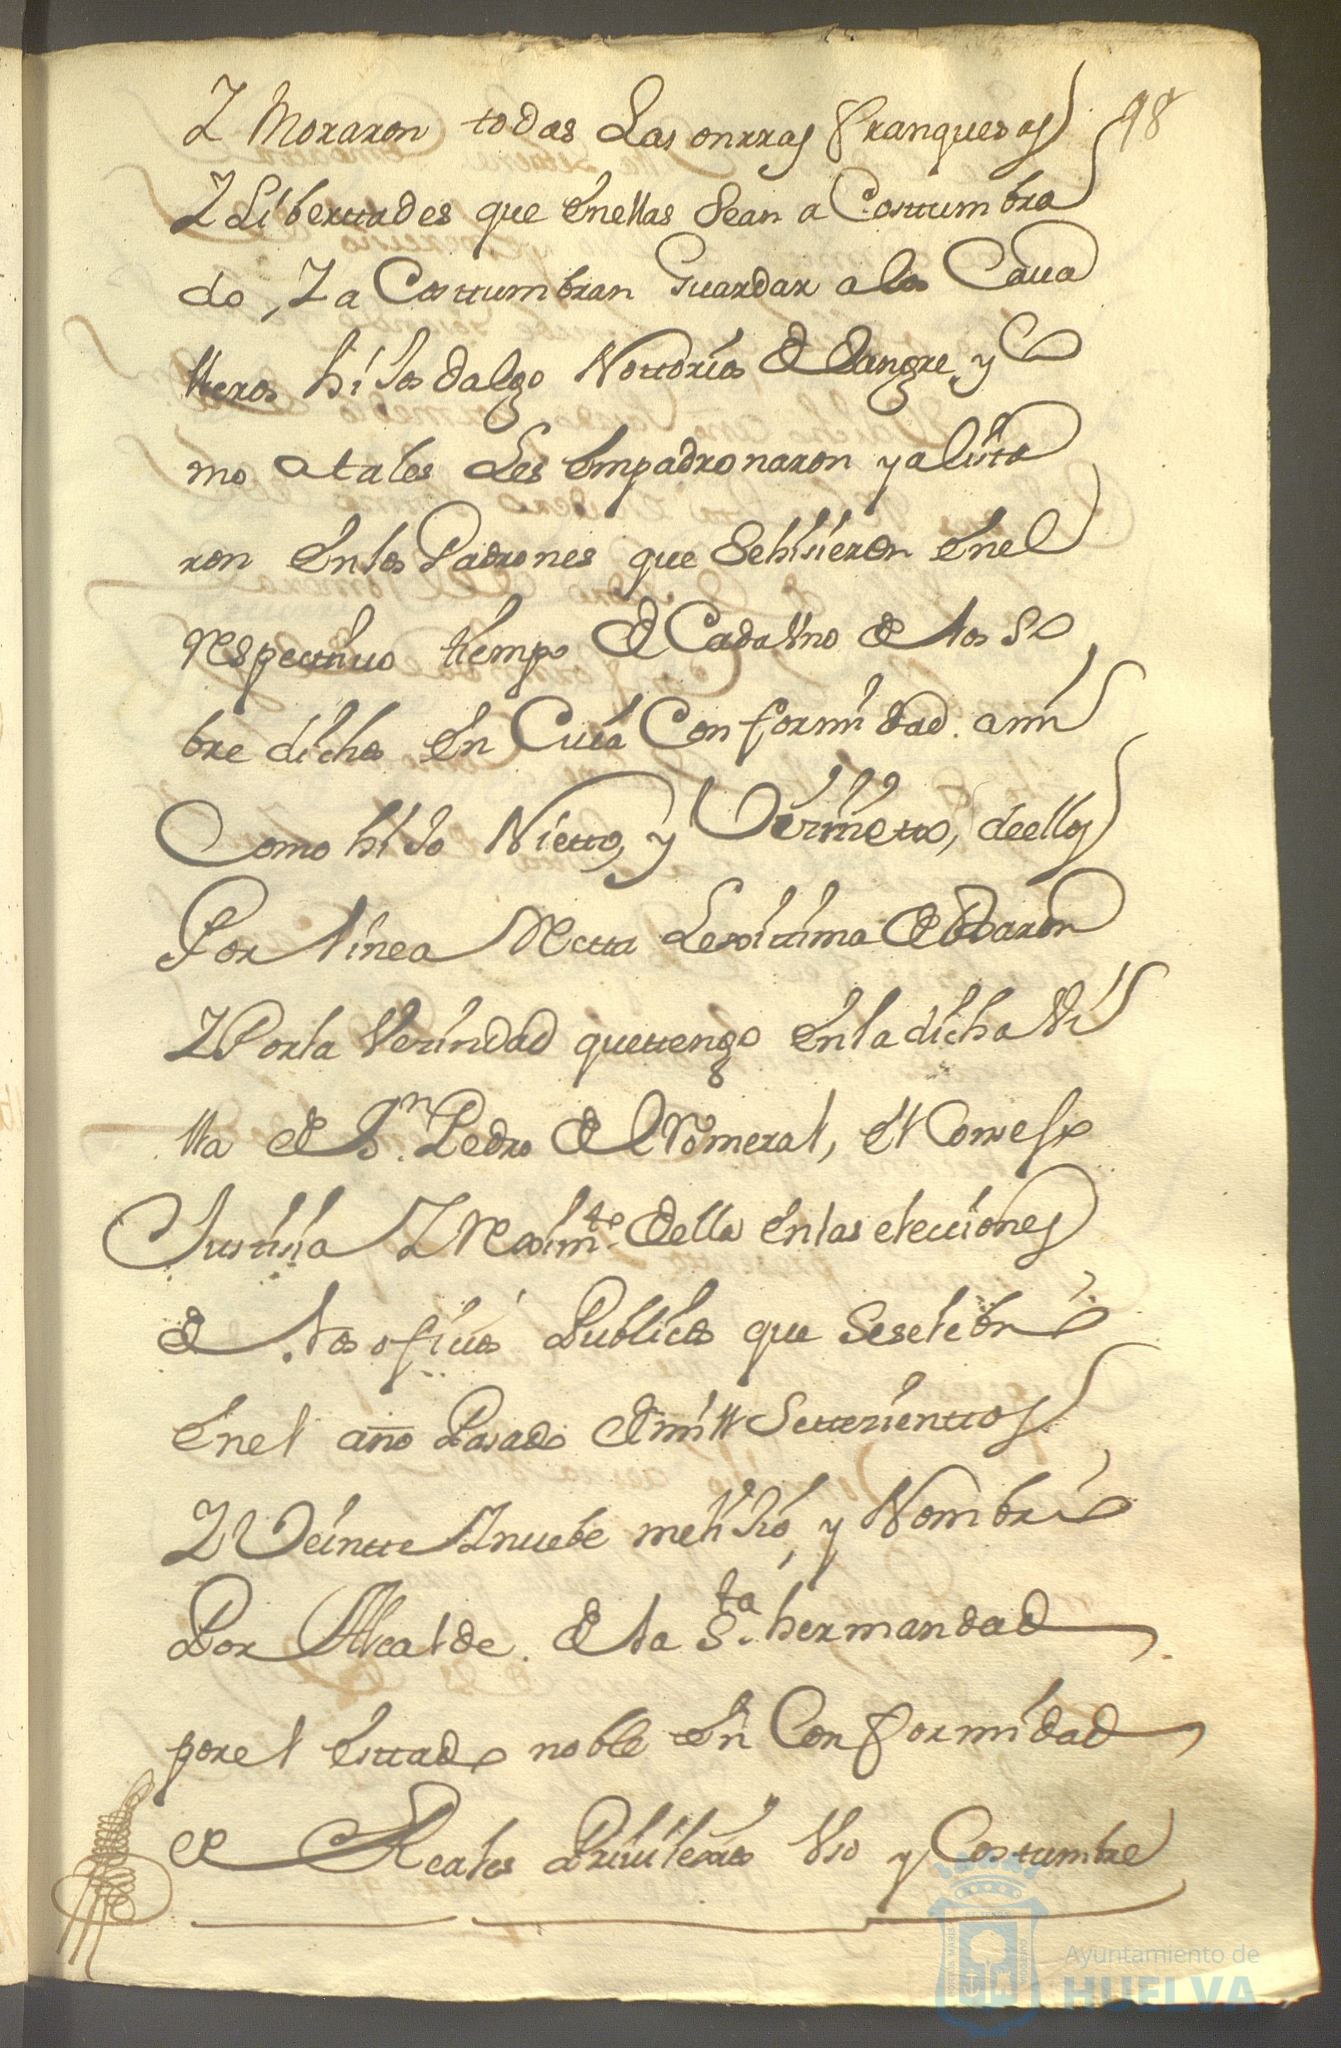 Y Moraron todas Las onrras franquesas 98
Y Libertades que Enellas sean a Costumbra
do, Y a Costumbran Guardar a los Caua
lleros hiJos dalgo Nottorios de Sangre, y Co
mo atales Les Empadronaron y alista
ron En los Padrones que Sehisieron Enel
respectiuo tiempo de Cada Vno de los So
bre dichos En Cuia Conformidad. ami
Como hiJo Nietto, y Visnietto, deellos
Por linea Recta Lexitima de Varon
Y Porla Vecindad quettengo En la dicha Vi
lla de Sn. Pedro del Romeral, El Consejo
Justisia Y Reximto. della en las elecciones
de los ofisios Publicos que Seselebro
Enel año Pasado de mill Settesienttos
Y Veintte Y nuebe meEliJio, y Nombro
Por Alcalde. de la Sta. hermandad
por el Estado noble En Conformidad
de Reales Priuilexios Vso y Costumbre
Ayuntamiento de
HUELVA